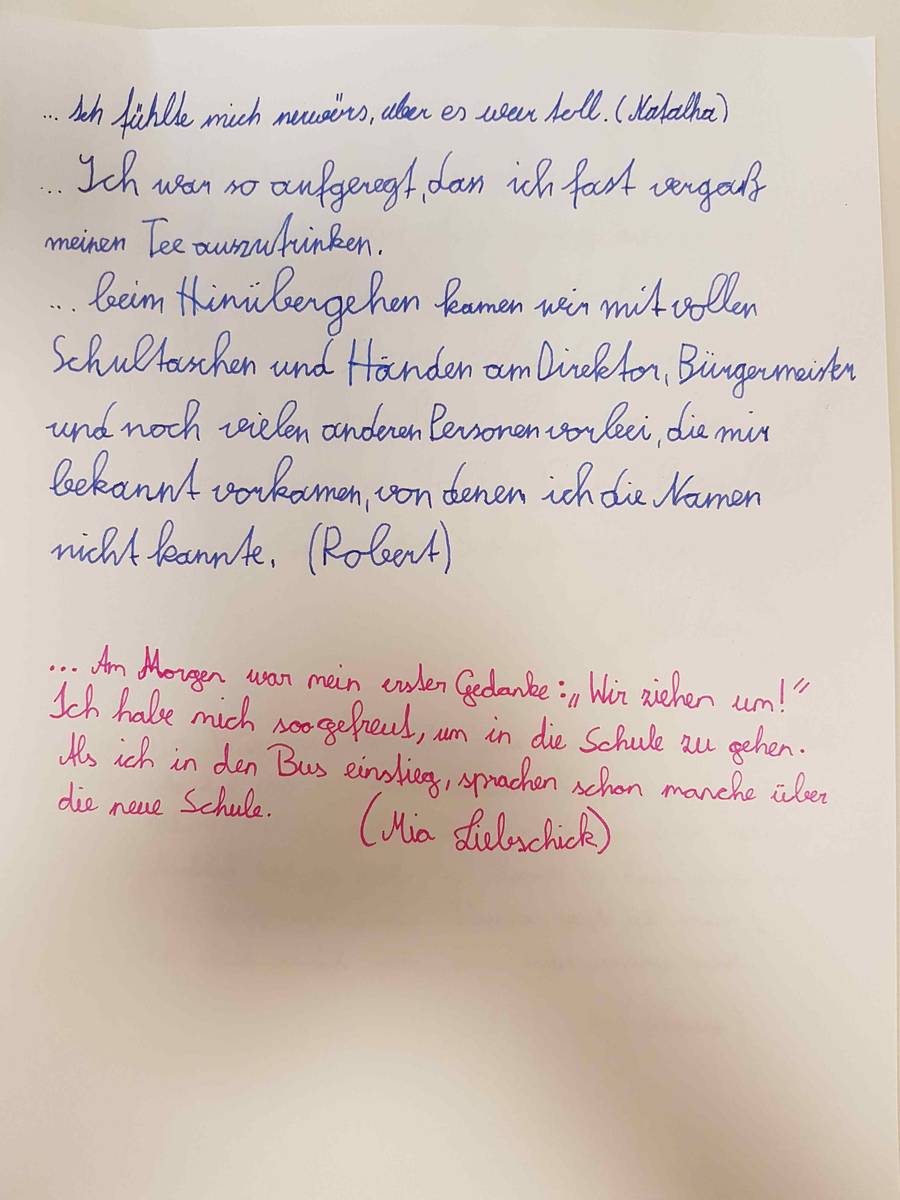 ... Ich fühlte mich nerwörs, aber es war toll. (Natalha)
... Ich war so aufgeregt, dass ich fast vergaß
meinen Tee auszutrinken.
... beim Hinübergehen kamen wir mit vollen
Schultaschen und Händen am Direktor, Bürgermeister
und noch vielen anderen Personen vorbei, die mir
bekannt vorkamen, von denen ich die Namen
nicht kannte. (Robert)
... Am Morgen war mein erster Gedanke: „Wir ziehen um!"
Ich habe mich soo gefreut, um in die Schule zu gehen.
Als ich in den Bus einstieg, sprachen schon manche über
die neue Schule. (Mia Liebschick)